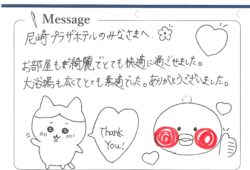 Message
尼崎プラザホテルのみなさまへ
お部屋もき綺麗でとても快適に過ごせました。
大浴場も広くてとても素適でした。ありがとうございました。
Thank
You!